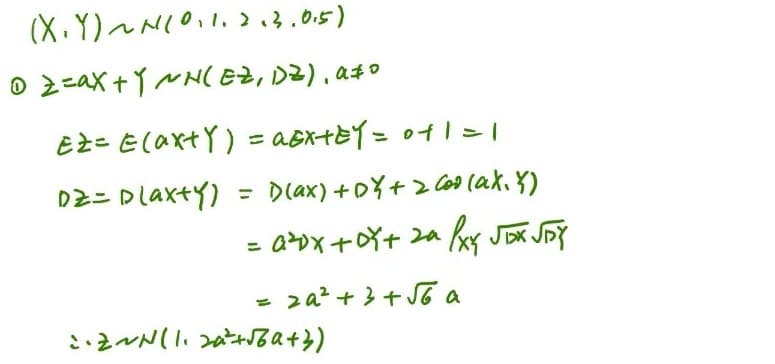 (X,Y)~N(0,1,2,3,0.5)
① Z=aX+Y~N(EZ,DZ),a≠0
EZ=E(aX+Y)=aEX+EY=0+1=1
DZ=D(aX+Y)=D(aX)+DY+2Cov(aX,Y)
=a²DX+DY+2aρ_XY √DX √DY
=2a²+3+√6 a
∴Z~N(1,2a²+√6a+3)